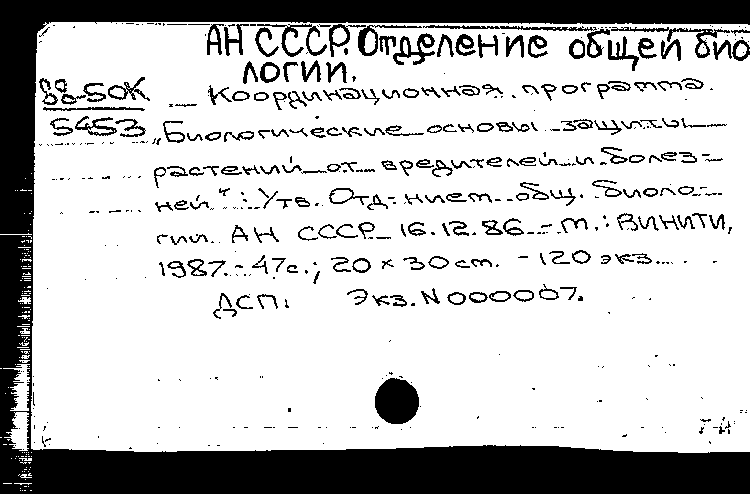 АН СССР. Отделение общей био
логии.
88-50К
5453
Координационная программа
„Биологические основы защиты
растений от вредителей и болез-
ней": Утв. Отд-нием общ. биоло-
гии АН СССР 16.12.86. - М.: ВИНИТИ,
1987. - 47с.; 20 × 30 см. - 120 экз.
ДСП. Экз. N 000007.